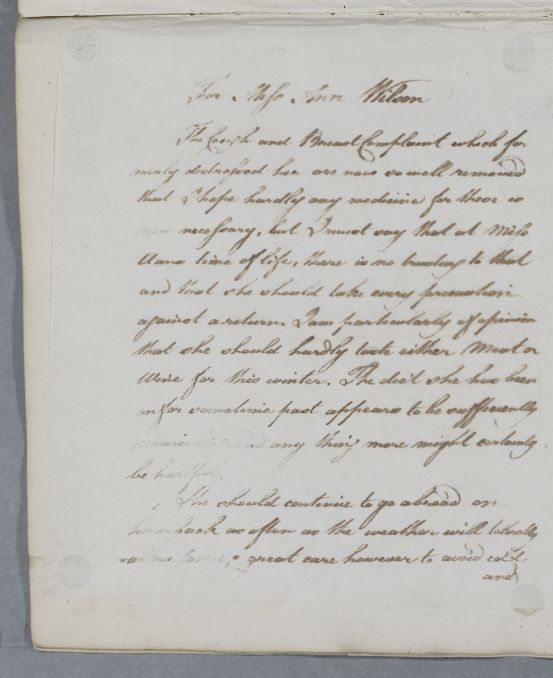 For Miss Ann Wilson
The Cough and Breast Complaint which for
merly distressed her are now so well removed
that I hope hardly any medicine for these is
now necessary, but I must say that at Miss
Anns time of life, there is no trusting to that
and that she should take every precaution
against a return. I am particularly of opinion
that she should hardly taste either Meat or
Wine for this winter. The diet she has been
in for sometime past appears to be sufficiently
nourishing and any thing more might certainly
be hurtful.
She should continue to go abroad on
horseback as often as the weather will tolerably
great care however to avoid cold
and